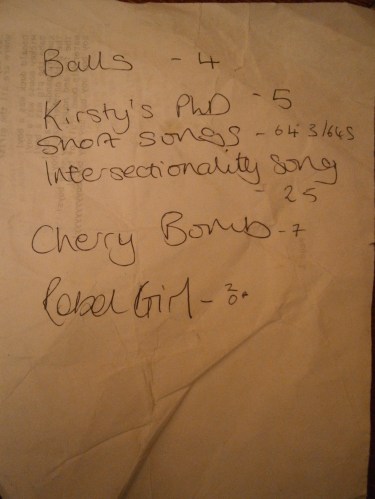 Balls - 4
Kirsty's PhD - 5
Short songs - 643/645
Intersectionality song
- 25
Cherry Bomb - 7
Rebel Girl - 20